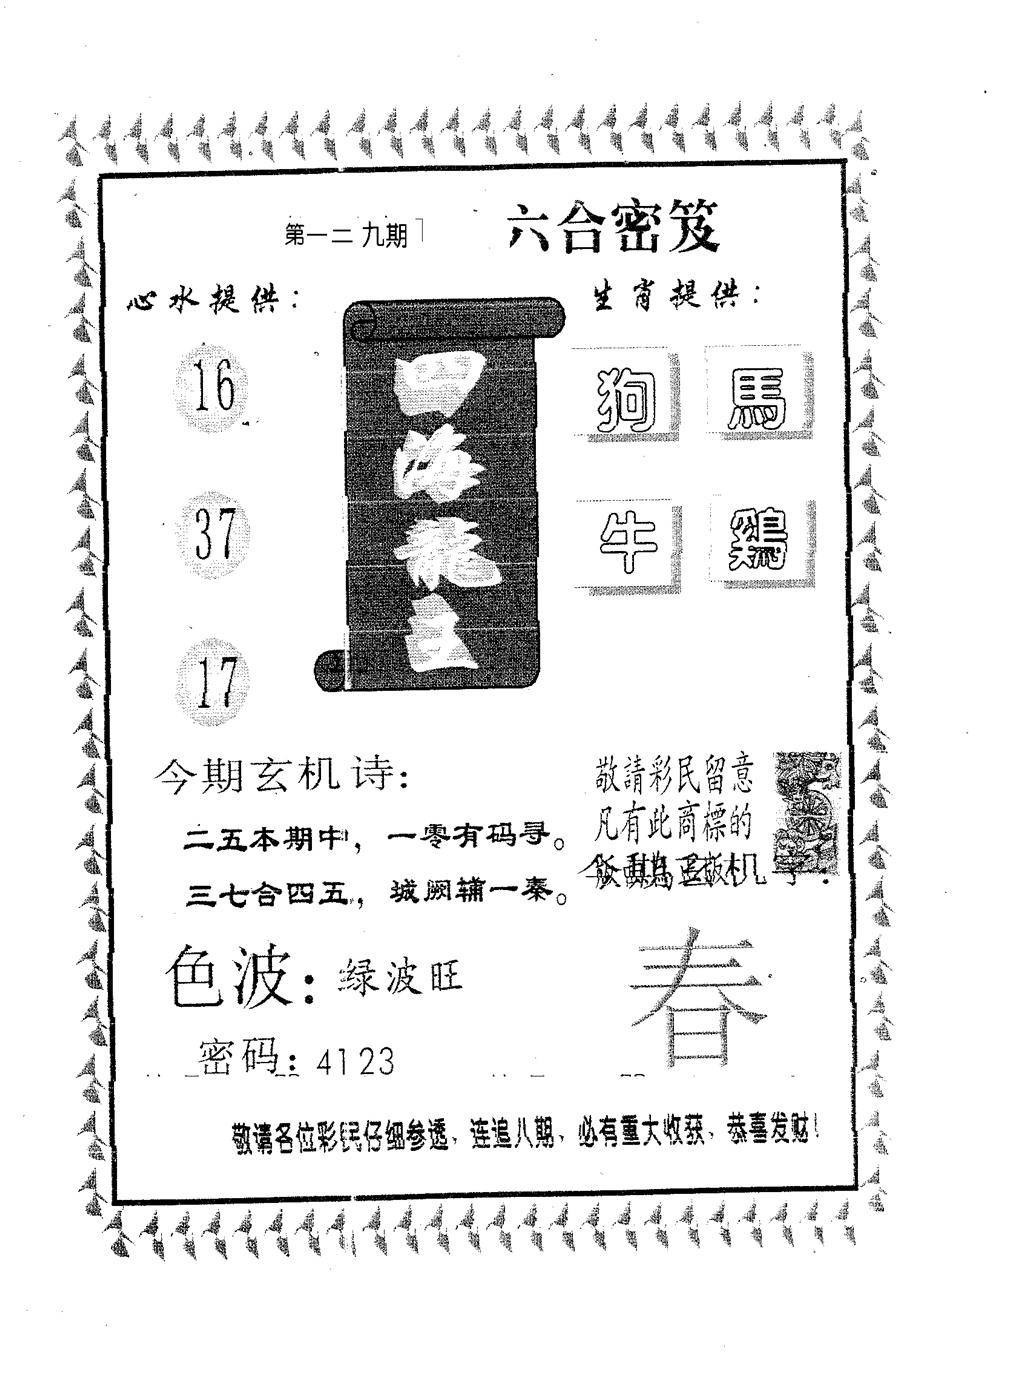 第一二九期
六合密笈
心水提供：
生肖提供：
16
37
17
四海龍王
狗 馬
牛 鷄
今期玄机诗：
二五本期中，一零有码寻。
三七合四五，城阙辅一秦。
敬請彩民留意
凡有此商標的
机字：
春
色波：绿波旺
密码：4123
敬请各位彩民仔细参透、连追八期、必有重大收获、恭喜发财！